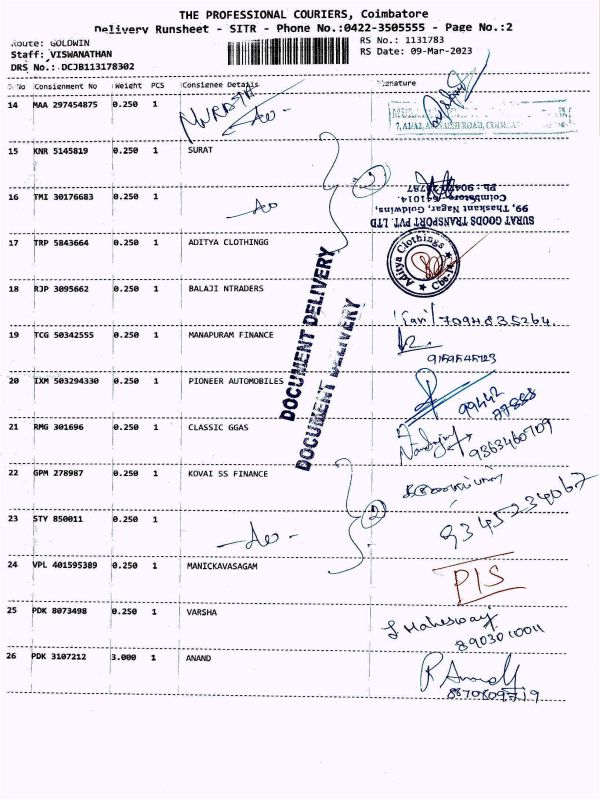 THE PROFESSIONAL COURIERS, Coimbatore
Delivery Runsheet - SITR - Phone No.:0422-3505555 - Page No.:2
Route: GOLDWIN
RS No.: 1131783
Staff: VISWANATHAN
RS Date: 09-Mar-2023
DRS No.: DCJB113178302
S No Consignment No Weight PCS Consignee Details Signature
14 MAA 297454875 0.250 1
15 KNR 5145819 0.250 1 SURAT
16 TMI 30176683 0.250 1
SURAT GOODS TRANSPORT PVT. LTD
99, Thaskant Nagar, Goldwins,
17 TRP 5843664 0.250 1 ADITYA CLOTHINGG
Aditya Clothings
18 RJP 3095662 0.250 1 BALAJI NTRADERS
DOCUMENT DELIVERY
DOCUMENT DELIVERY
7094835264
19 TCG 50342555 0.250 1 MANAPURAM FINANCE
20 IXM 503294330 0.250 1 PIONEER AUTOMOBILES
99442
77888
21 RMG 301696 0.250 1 CLASSIC GGAS
9363460709
22 GPM 278987 0.250 1 KOVAI SS FINANCE
2
23 STY 850011 0.250 1
9345234067
24 VPL 401595389 0.250 1 MANICKAVASAGAM
PIS
25 PDK 8073498 0.250 1 VARSHA
8903010011
26 PDK 3107212 3.000 1 ANAND